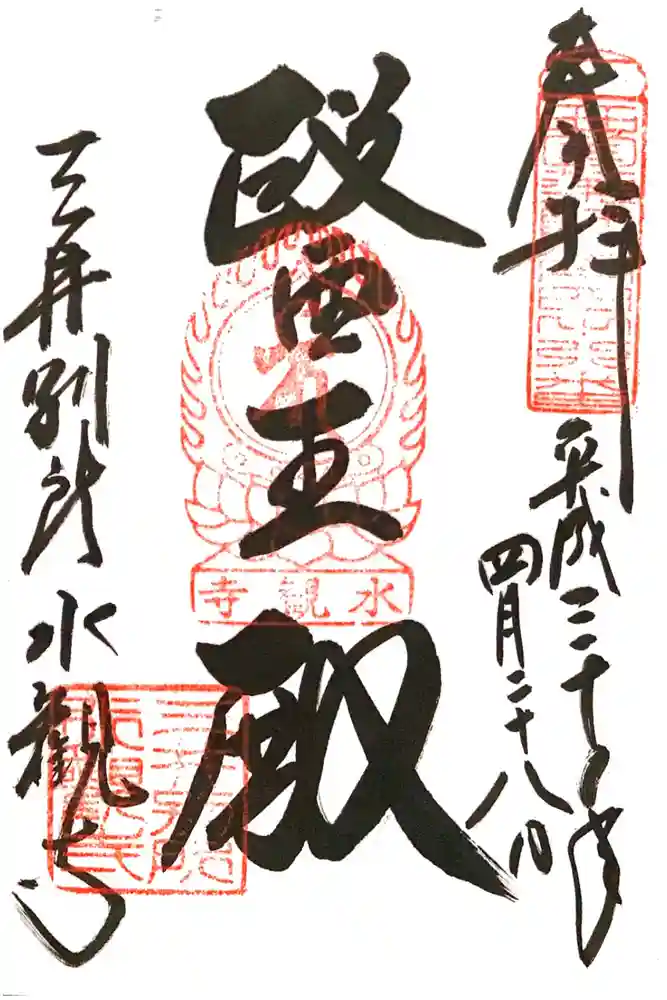 奉拝
平成三十年
四月二十八日
醫王殿
水観寺
三井別所
水観寺